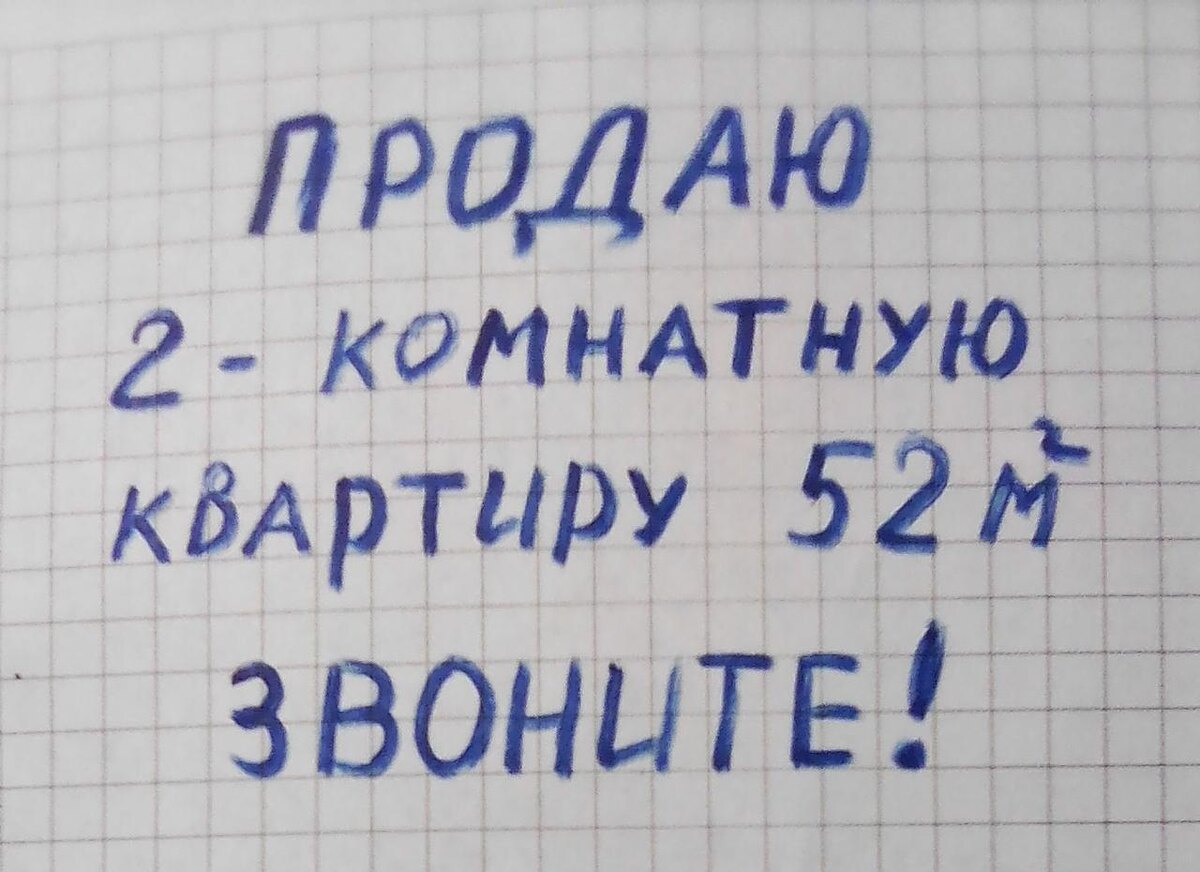 ПРОДАЮ
2-КОМНАТНУЮ
КВАРТИРУ 52 м²
ЗВОНИТЕ!